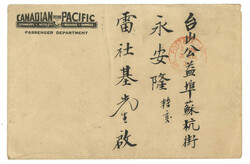 CANADIAN PACIFIC
PASSENGER DEPARTMENT
台山公益埠蘇杭街
永安隆
雷社基先生啟